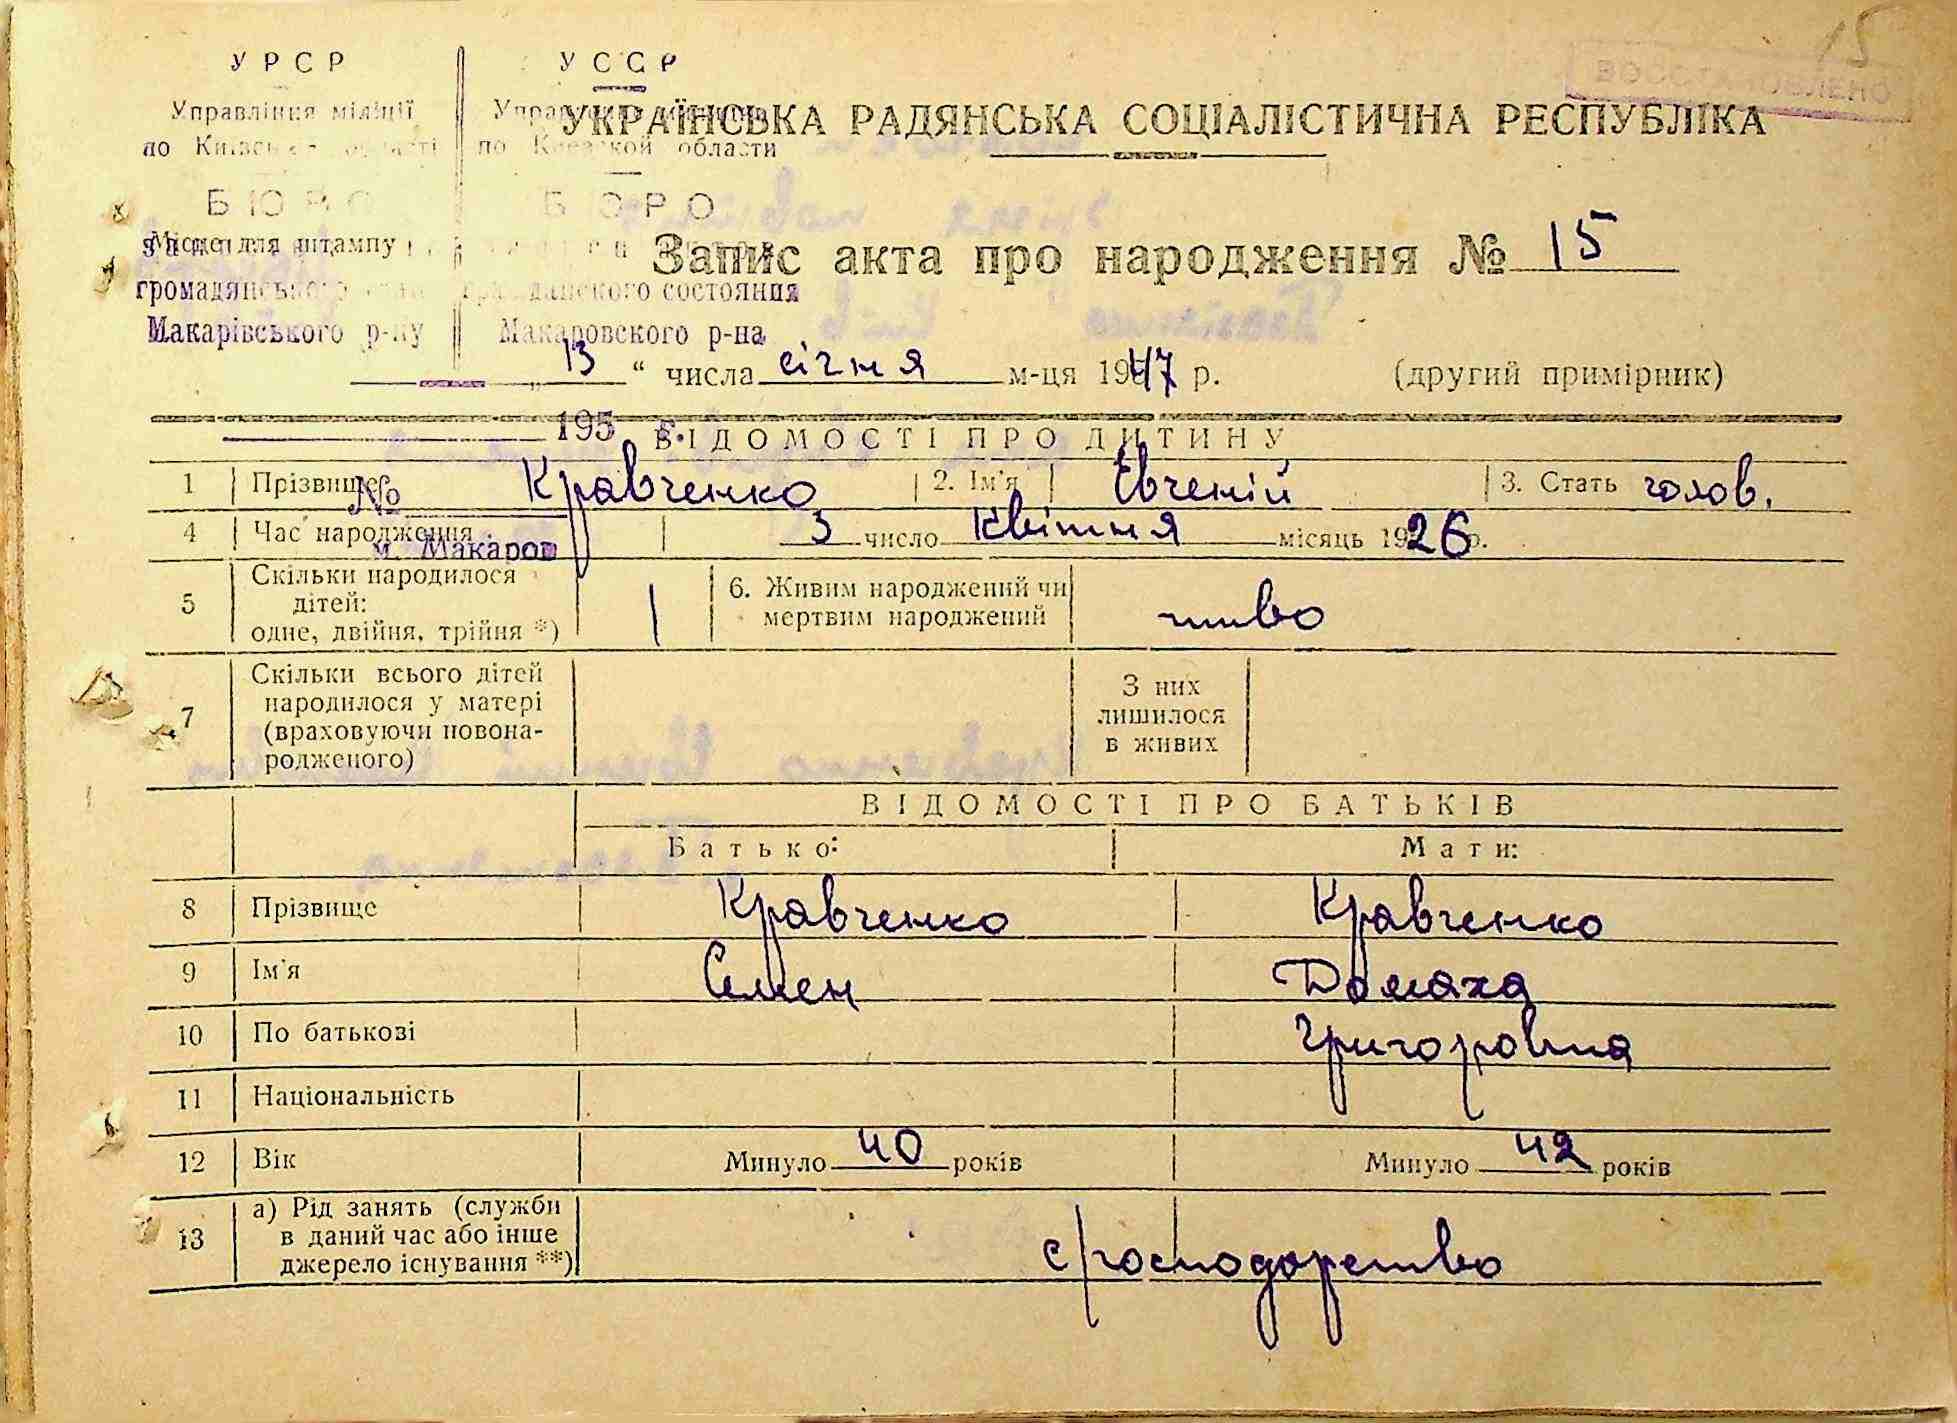 15
УРСР
Управління міліції
по Київській області
БЮРО
громадянського
Макарівського р-ну
УССР
по Киевской области
БЮРО
гражданского состояния
Макаровского р-на
195
№
м. Макаров
УКРАЇНСЬКА РАДЯНСЬКА СОЦІАЛІСТИЧНА РЕСПУБЛІКА
Місце для штампу
Запис акта про народження № 15
„ 13 “ числа січня м-ця 1947 р. (другий примірник)
ВІДОМОСТІ ПРО ДИТИНУ
1 Прізвище Кравченко 2. Ім'я Євгеній 3. Стать чолов.
4 Час народження 3 число квітня місяць 1926 р.
5 Скільки народилося
дітей:
одне, двійня, трійня *) 1
6. Живим народжений чи
мертвим народжений живо
7 Скільки всього дітей
народилося у матері
(враховуючи новона-
родженого)
З них
лишилося
в живих
ВІДОМОСТІ ПРО БАТЬКІВ
Батько: Мати:
8 Прізвище Кравченко Кравченко
9 Ім'я Семен Домаха
10 По батькові Григоровна
11 Національність
12 Вік Минуло 40 років Минуло 42 років
13 а) Рід занять (служби
в даний час або інше
джерело існування **) с/господарство